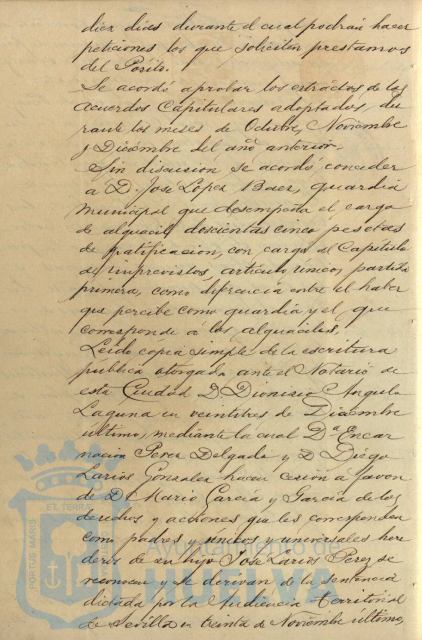 diez dias durante el cual podrán hacer
peticiones los que soliciten prestamos
del Pósito.
Se acordó aprobar los extractos de los
acuerdos Capitulares adoptados, du
rante los meses de Octubre, Noviembre
y Diciembre del año anterior.
Sin discusión se acordó conceder
á D. José López Baez, guardia
municipal que desempeña el cargo
de alguacil doscientas cinco pesetas
de gratificacion, con cargo al Capitulo
de imprevistos, artículo único, partida
primera, como diferencia entre el haber
que percibe como guardia y el que
corresponde á los alguaciles.
Leido copia simple de la escritura
pública otorgada ante el Notario de
esta Ciudad D. Dionisio Angulo
Laguna en veintitres de Diciembre
último, mediante la cual Dª Encar
nación Perez Delgado y D. Diego
Larios Gonzalez hacen cesión á favor
de D. Mario García y García de los
derechos y acciones que les corresponden
como padres y unicos y universales here
deros de su hijo José Larios Perez se
reconocen y se derivan de la sentencia
dictada por la Audiencia territorial
de Sevilla en treinta de Noviembre último,
PORTUS MARIS ET TERRAE
Ayuntamiento de
HUELVA